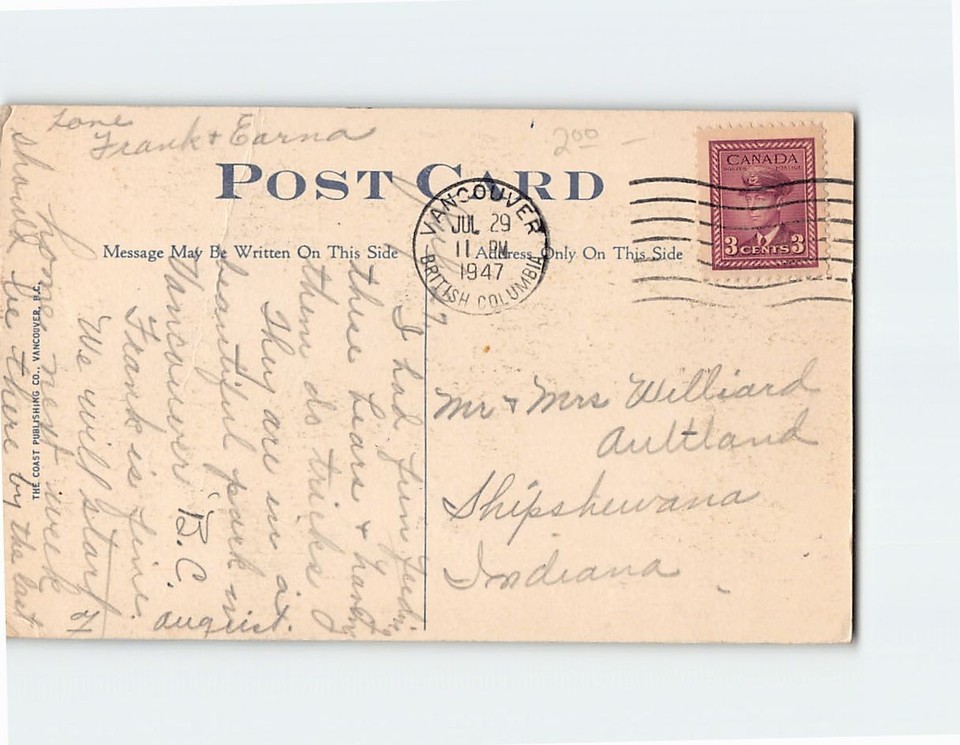 Love
Frank & Earna
2 00
POST CARD
VANCOUVER
JUL 29
11 PM
1947
BRITISH COLUMBIA
CANADA
POSTES POSTAGE
3 CENTS 3
Message May Be Written On This Side
Address Only On This Side
I had fun feeding
these bears &
them do tricks
They are in a
beautiful park in
Vancouver B.C.
Frank is fine.
We will start
home next week
should be there by the last of
august.
THE COAST PUBLISHING CO., VANCOUVER, B.C.
Mr & Mrs Williard
Aultland
Shipshewana
Indiana